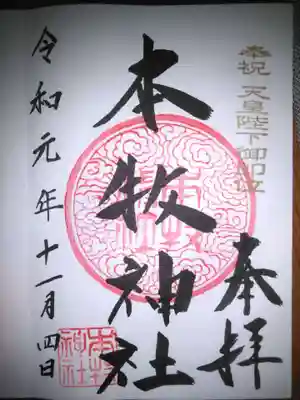 奉祝 天皇陛下御即位
奉拝
本牧神社
令和元年十一月四日
本牧
神社